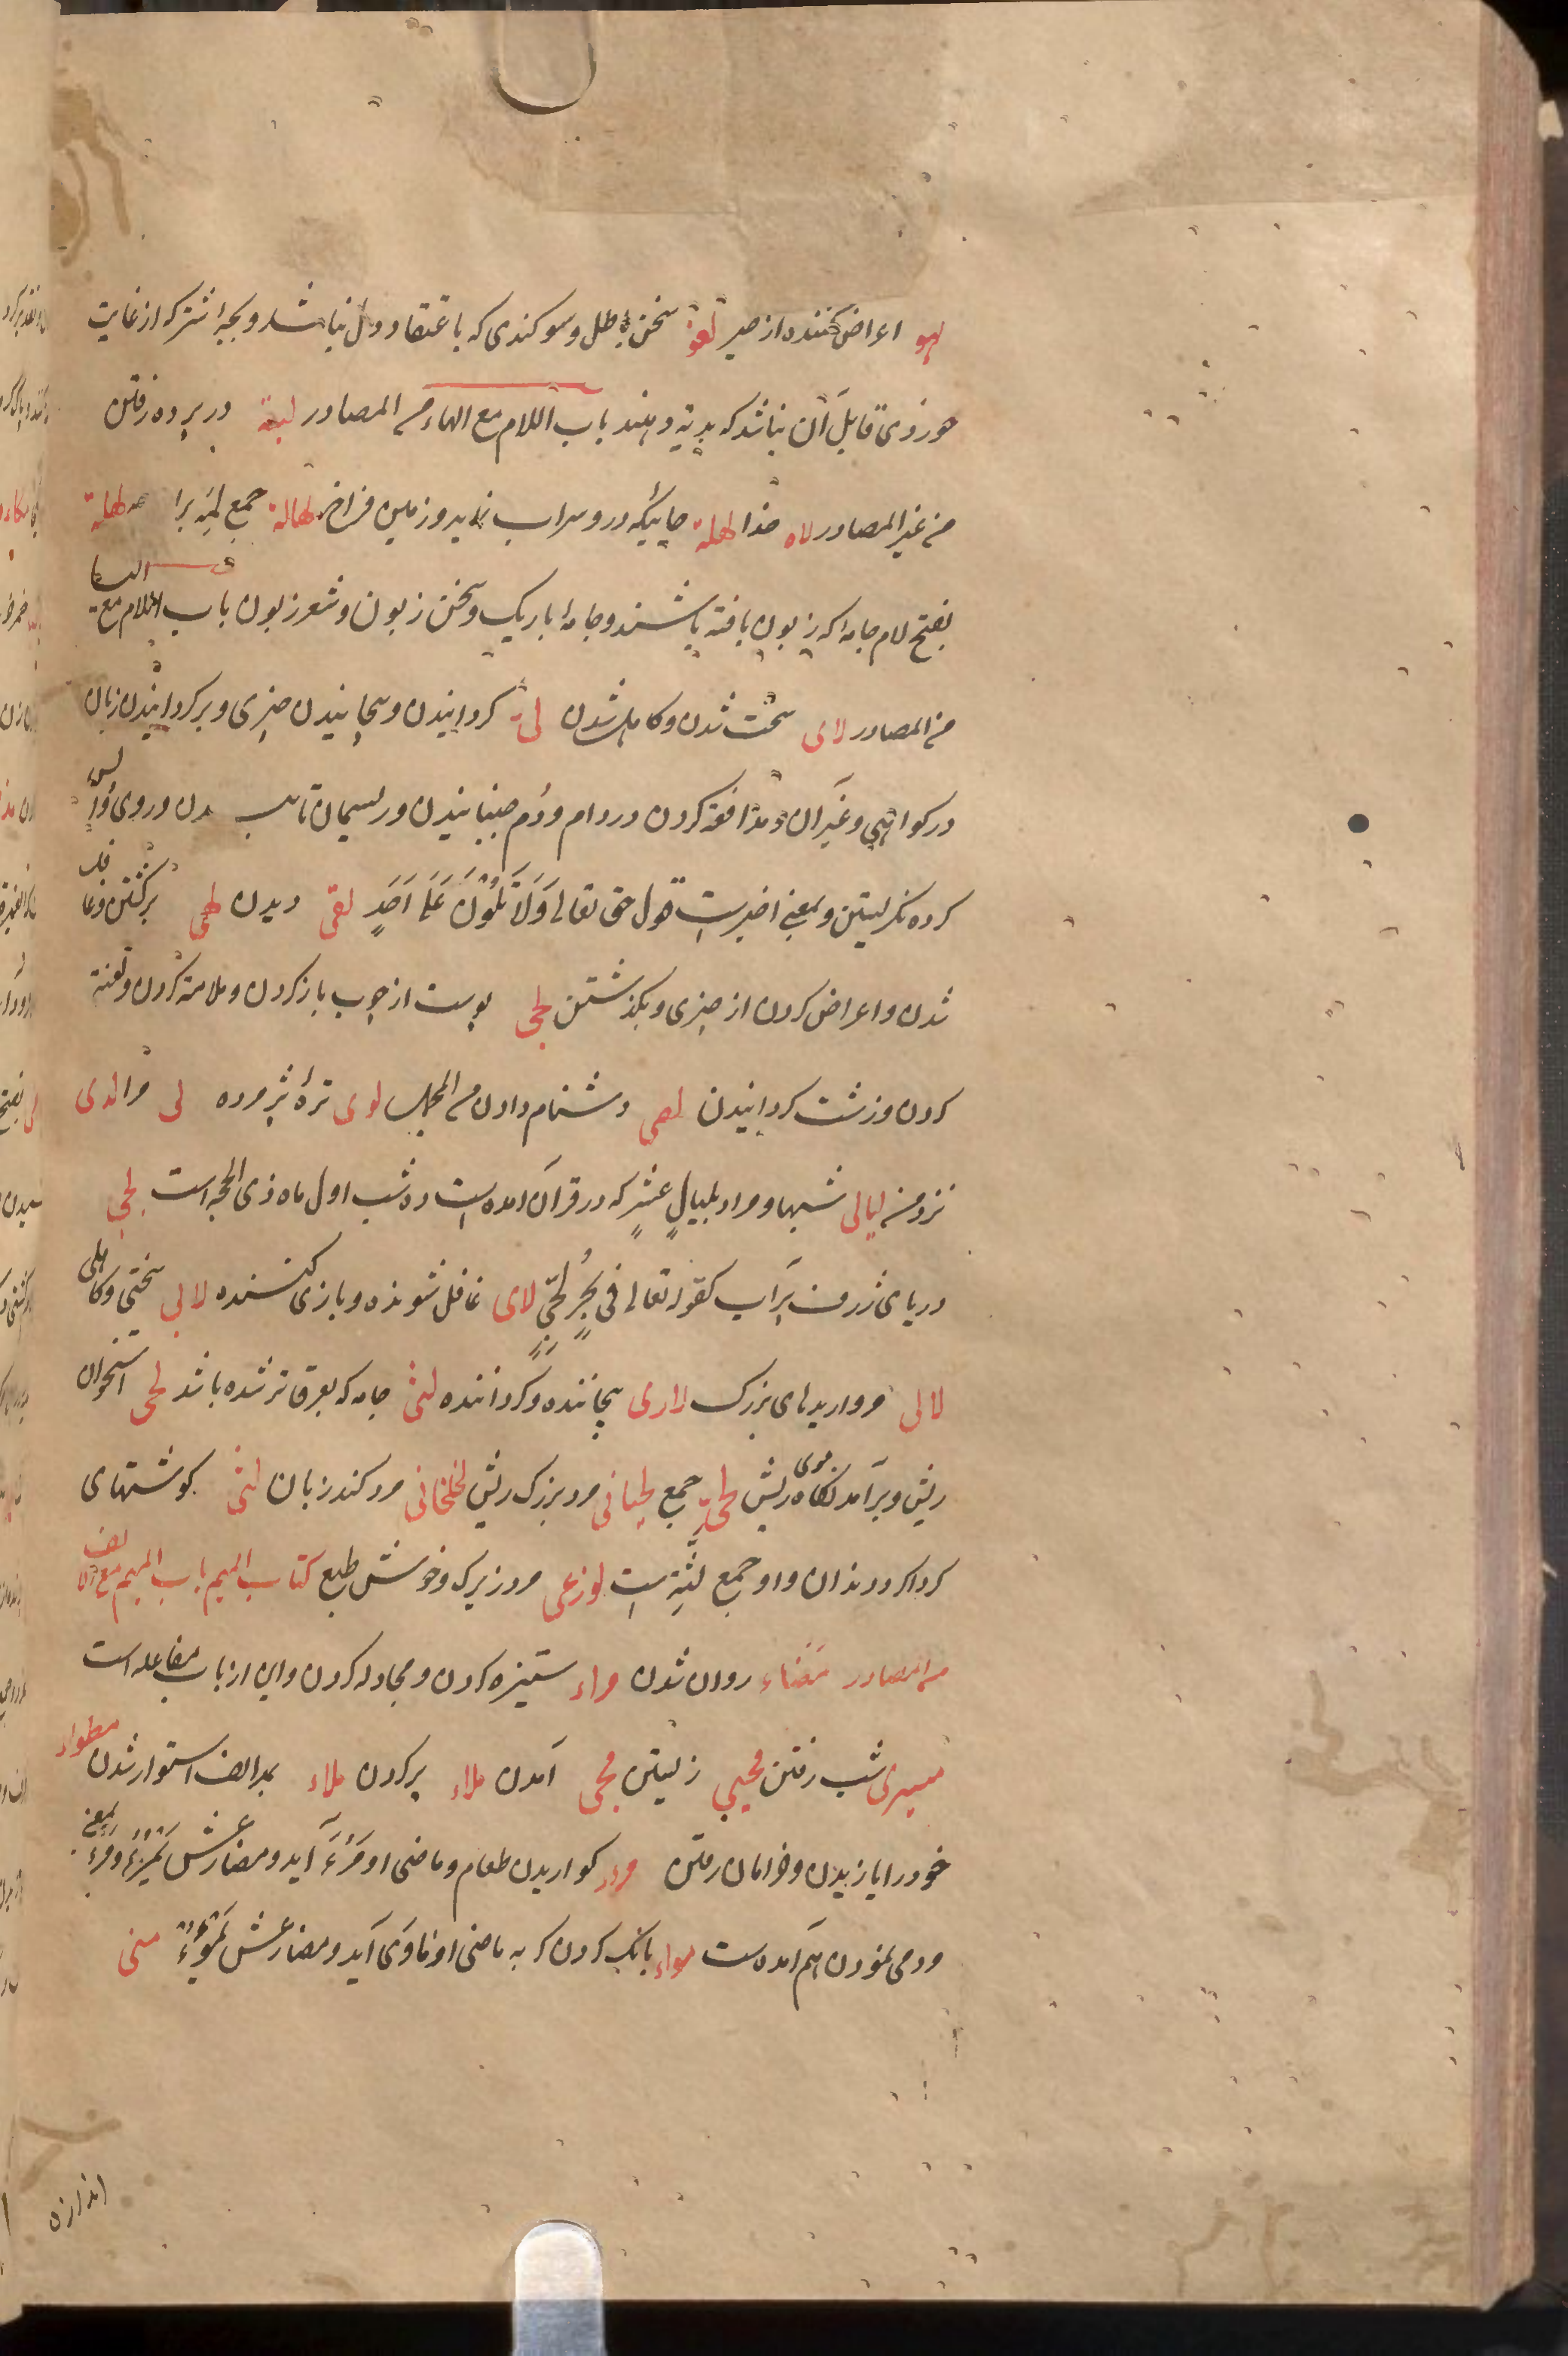 لهو اعراض کننده از خیر لغو سخن باطل و سوکندی که باعتقاد دل نباشد و بچه اشتر که از غایت
خوردی قابل آن نباشد که بدیة دهند باب اللام مع الهاء من المصادر لیه در پرده رفتن
من غیر المصادر لاه خدا لهله جاییکه درو سراب نماید و زمین فراخ لهاله جمع لهله
بفتح لام جامه که زبون بافته باشند و جامهٔ باریک و سخن زبون و شعر زبون باب اللام مع الیا
من المصادر لای سخت شدن و کاهل شدن لی کردانیدن و پیچانیدن چیزی و برکردانیدن زبان
در کواهی و غیر آن و مدافعه کردن در وام و دم جنبانیدن و ریسمان تا دن و روی وا پس
کرده نکریستن و بمعنی اخیرست قول حق تعالی وَلَا تَلْوُنَ عَلَی اَحَدٍ لقی دیدن لهی برکشتن و غافل
شدن و اعراض کردن از چیزی و بکذشتن لحی پوست از چوب باز کردن و ملامة کردن و لعنة
کردن و زشت کردانیدن لصی دشنام دادن من المجمل لوی ترهٔ پژمرده لی مرا لدی
نزد من لیالی شبها و مراد بلیالٍ عشرٍ که در قرآن آمده است ده شب اول ماه ذی الحجه است لجی
دریای ژرف پر آب کقوله تعالی فی بحرٍ لجیٍّ لاهی غافل شونده و بازی کننده لالی سختی و کاهلی
لالی مرواریدهای بزرک لاوی پیچاننده و کرداننده لثی جامه که بعرق تر شده باشد لحی استخوان
ریش و برآمدنکاه موی ریش لحی جمع لحیانی مرد بزرک ریش لخلخانی مرد کند زبان لثی کوشتهای
کرداکرد دندان و او جمع لثیة است لوذعی مرد زیرک و خوش طبع کتاب المیم باب المیم مع الالف
من المصادر مضاء روان شدن مراء ستیزه کردن و مجادله کردن و این از باب مفاعله است
مسری شب رفتن محیی زیستن مجی آمدن ملاء پر کردن ملاء بمد الف استوار شدن مطواء
خود را یازیدن و خرامان رفتن مرء کواریدن طعام و ماضی او مَرُءَ آید و مضارعش یَمْرُءُ و مرء بمعنی
مردمی نمودن هم آمده ست مواء بانک کردن کربه ماضی او مَاوَی آید و مضارعش یَمُوءُ منی
اندازه